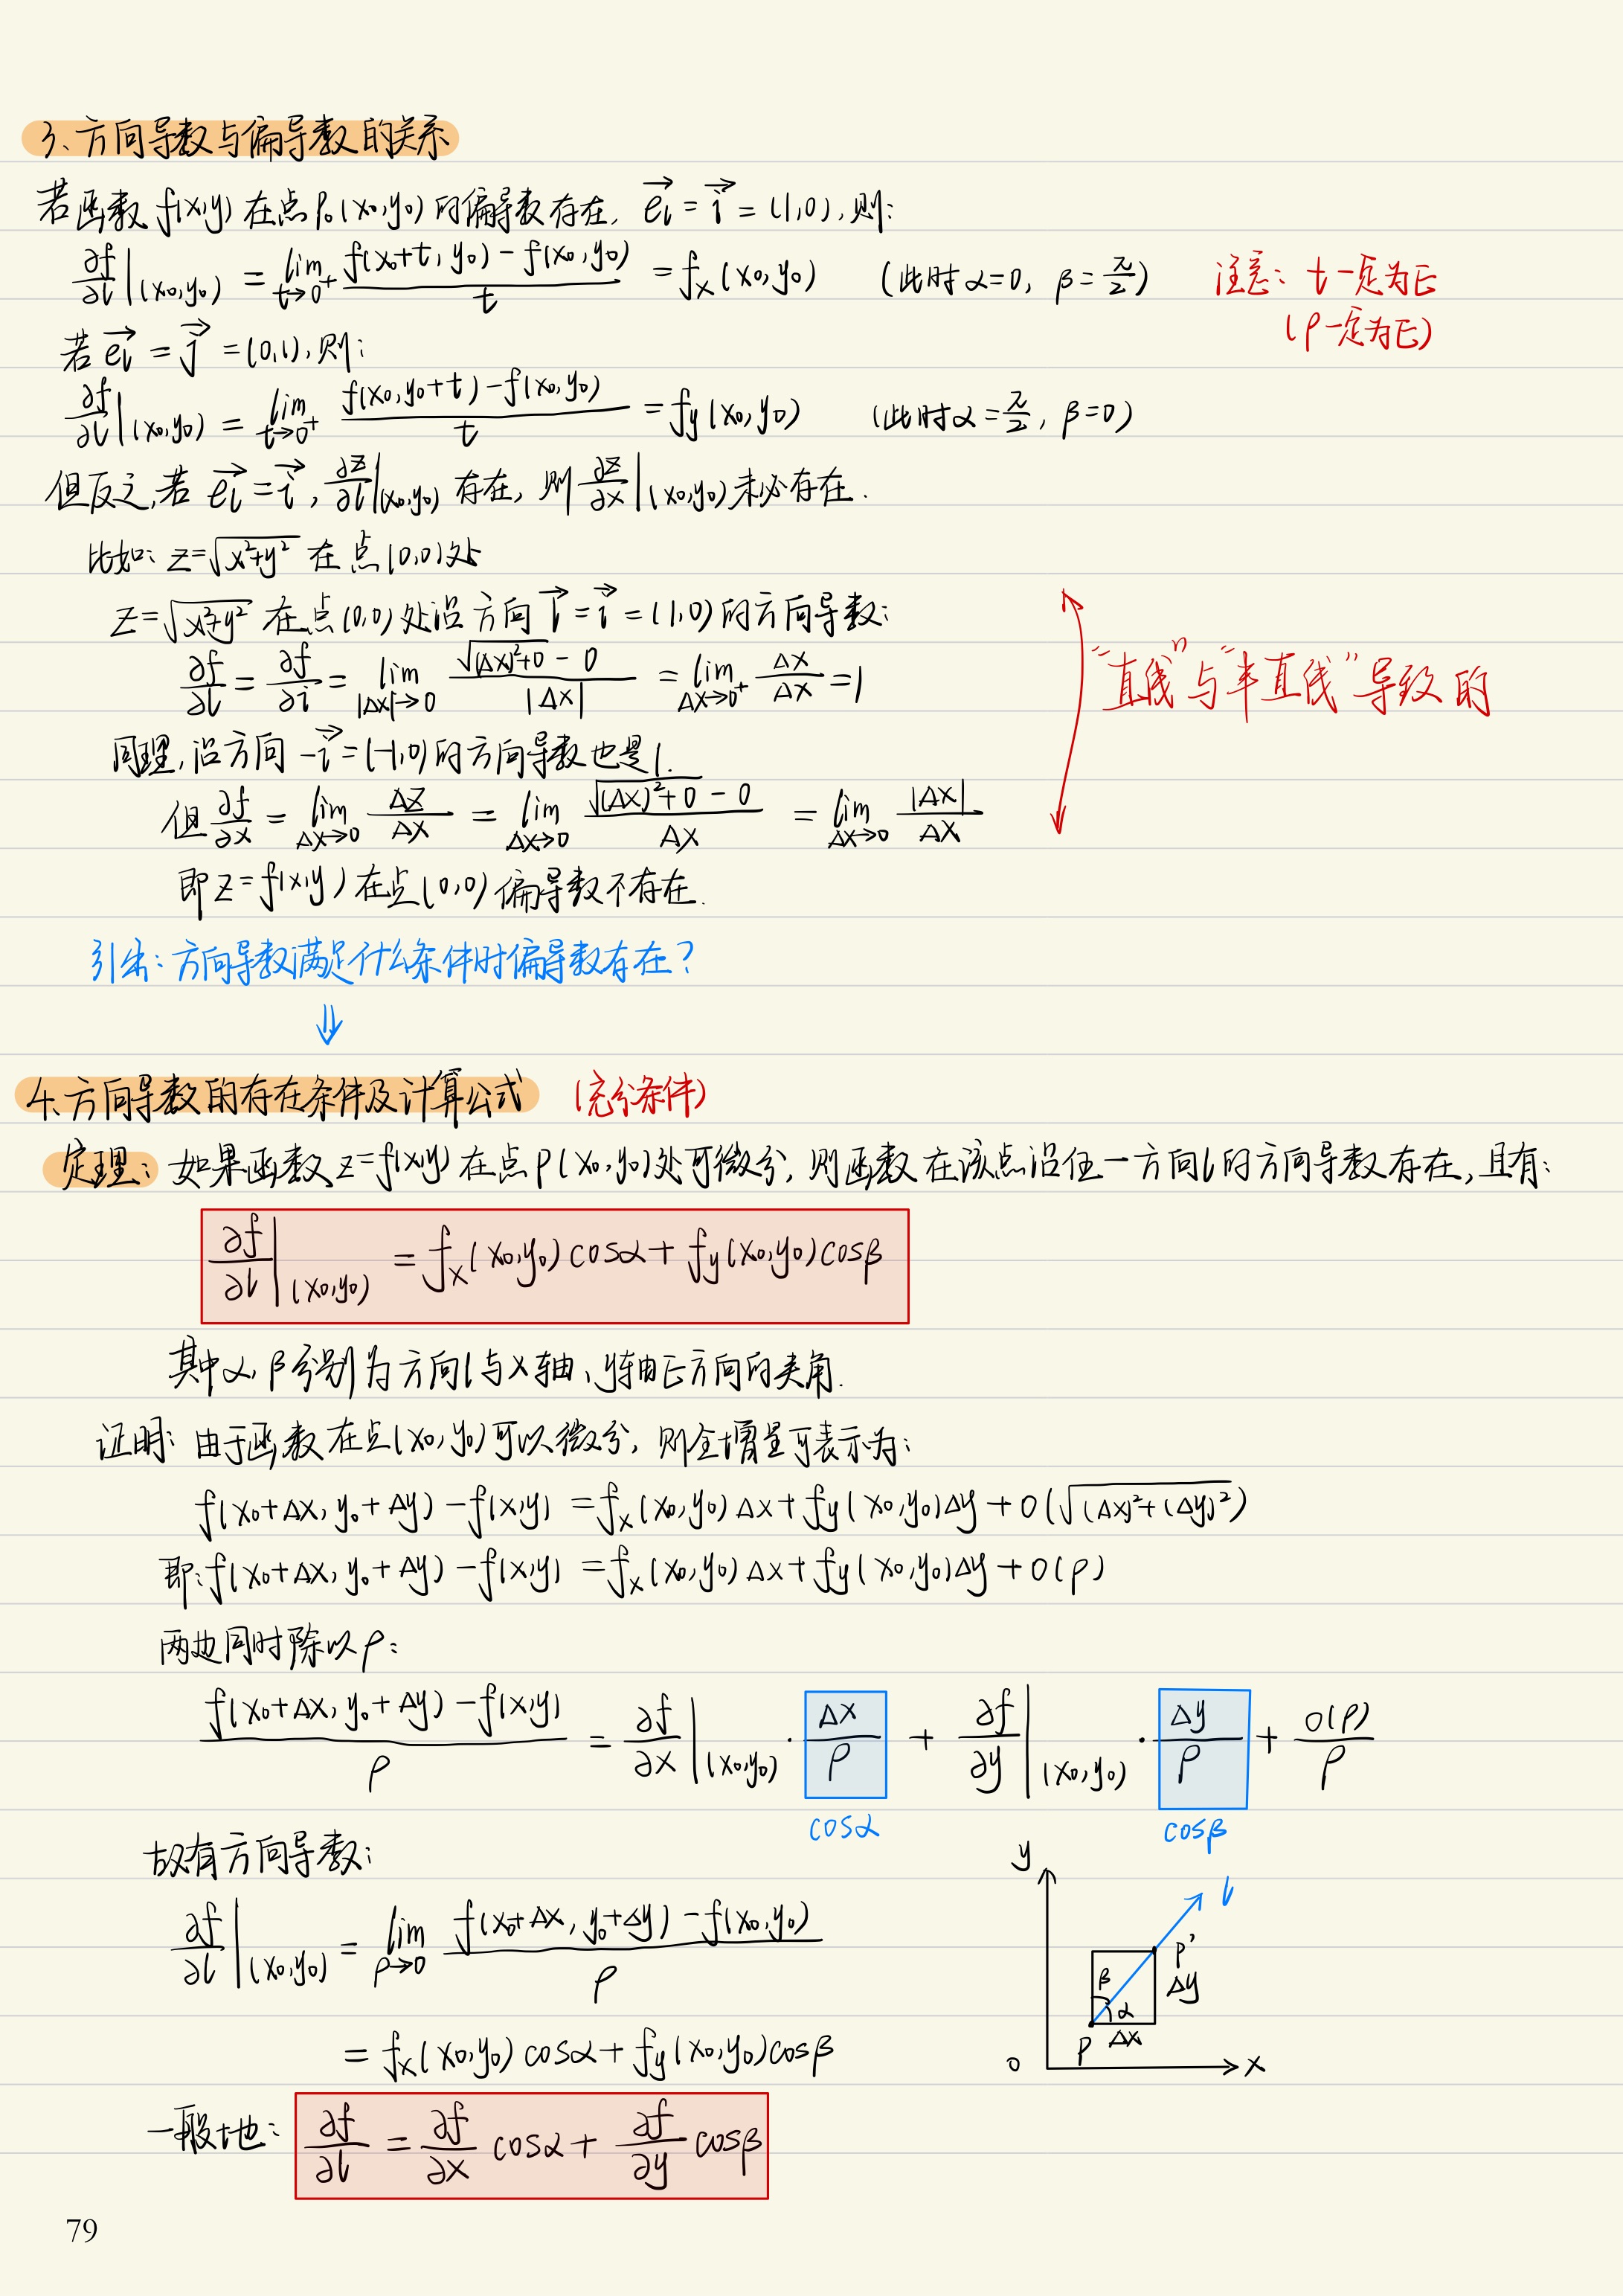 3、方向导数与偏导数的关系
若函数 f(x,y) 在点 P₀(x₀,y₀) 的偏导数存在, $\vec{e_l}=\vec{i}$ = (1,0), 则:
$\frac{\partial f}{\partial l}|_{(x_0,y_0)} = \lim_{t\to 0^+}\frac{f(x_0+t,y_0)-f(x_0,y_0)}{t} = f_x(x_0,y_0)$ (此时 α=0, β=$\frac{\pi}{2}$) 注意: t一定为正
(ρ一定为正)
若 $\vec{e_l}=\vec{j}$ = (0,1), 则:
$\frac{\partial f}{\partial l}|_{(x_0,y_0)} = \lim_{t\to 0^+}\frac{f(x_0,y_0+t)-f(x_0,y_0)}{t} = f_y(x_0,y_0)$ (此时 α=$\frac{\pi}{2}$, β=0)
但反之,若 $\vec{e_l}=\vec{i}$, $\frac{\partial z}{\partial l}|_{(x_0,y_0)}$ 存在, 则 $\frac{\partial z}{\partial x}|_{(x_0,y_0)}$ 未必存在.
比如: $z=\sqrt{x^2+y^2}$ 在点(0,0)处
$z=\sqrt{x^2+y^2}$ 在点(0,0)处沿方向 $\vec{l}=\vec{i}$ = (1,0) 的方向导数:
$\frac{\partial f}{\partial l}=\frac{\partial f}{\partial i}=\lim_{|\Delta x|\to 0}\frac{\sqrt{(\Delta x)^2+0}-0}{|\Delta x|}=\lim_{\Delta x\to 0^+}\frac{\Delta x}{\Delta x}=1$
"直线"与"半直线"导致的
同理,沿方向 $-\vec{i}$=(-1,0)的方向导数也是1.
但 $\frac{\partial f}{\partial x}=\lim_{\Delta x\to 0}\frac{\Delta z}{\Delta x}=\lim_{\Delta x\to 0}\frac{\sqrt{(\Delta x)^2+0}-0}{\Delta x}=\lim_{\Delta x\to 0}\frac{|\Delta x|}{\Delta x}$
即 z=f(x,y) 在点(0,0)偏导数不存在.
引出: 方向导数满足什么条件时偏导数存在?
⇓
4、方向导数的存在条件及计算公式 (充分条件)
定理: 如果函数 z=f(x,y) 在点 P(x₀,y₀)处可微分, 则函数在该点沿任一方向l的方向导数存在,且有:
$\frac{\partial f}{\partial l}|_{(x_0,y_0)} = f_x(x_0,y_0)\cos\alpha+f_y(x_0,y_0)\cos\beta$
其中α,β分别为方向l与x轴、y轴正方向的夹角.
证明: 由于函数在点(x₀,y₀)可以微分, 则全增量可表示为:
$f(x_0+\Delta x,y_0+\Delta y)-f(x,y)=f_x(x_0,y_0)\Delta x+f_y(x_0,y_0)\Delta y+o(\sqrt{(\Delta x)^2+(\Delta y)^2})$
即: $f(x_0+\Delta x,y_0+\Delta y)-f(x,y)=f_x(x_0,y_0)\Delta x+f_y(x_0,y_0)\Delta y+o(\rho)$
两边同时除以ρ:
$\frac{f(x_0+\Delta x,y_0+\Delta y)-f(x,y)}{\rho}=\frac{\partial f}{\partial x}|_{(x_0,y_0)}\cdot\frac{\Delta x}{\rho}+\frac{\partial f}{\partial y}|_{(x_0,y_0)}\cdot\frac{\Delta y}{\rho}+\frac{o(\rho)}{\rho}$
cosα cosβ
故有方向导数:
$\frac{\partial f}{\partial l}|_{(x_0,y_0)}=\lim_{\rho\to 0}\frac{f(x_0+\Delta x,y_0+\Delta y)-f(x_0,y_0)}{\rho}$
= $f_x(x_0,y_0)\cos\alpha+f_y(x_0,y_0)\cos\beta$
y
l
P'
β
Δy
α
P Δx
0 x
一般地: $\frac{\partial f}{\partial l}=\frac{\partial f}{\partial x}\cos\alpha+\frac{\partial f}{\partial y}\cos\beta$
79